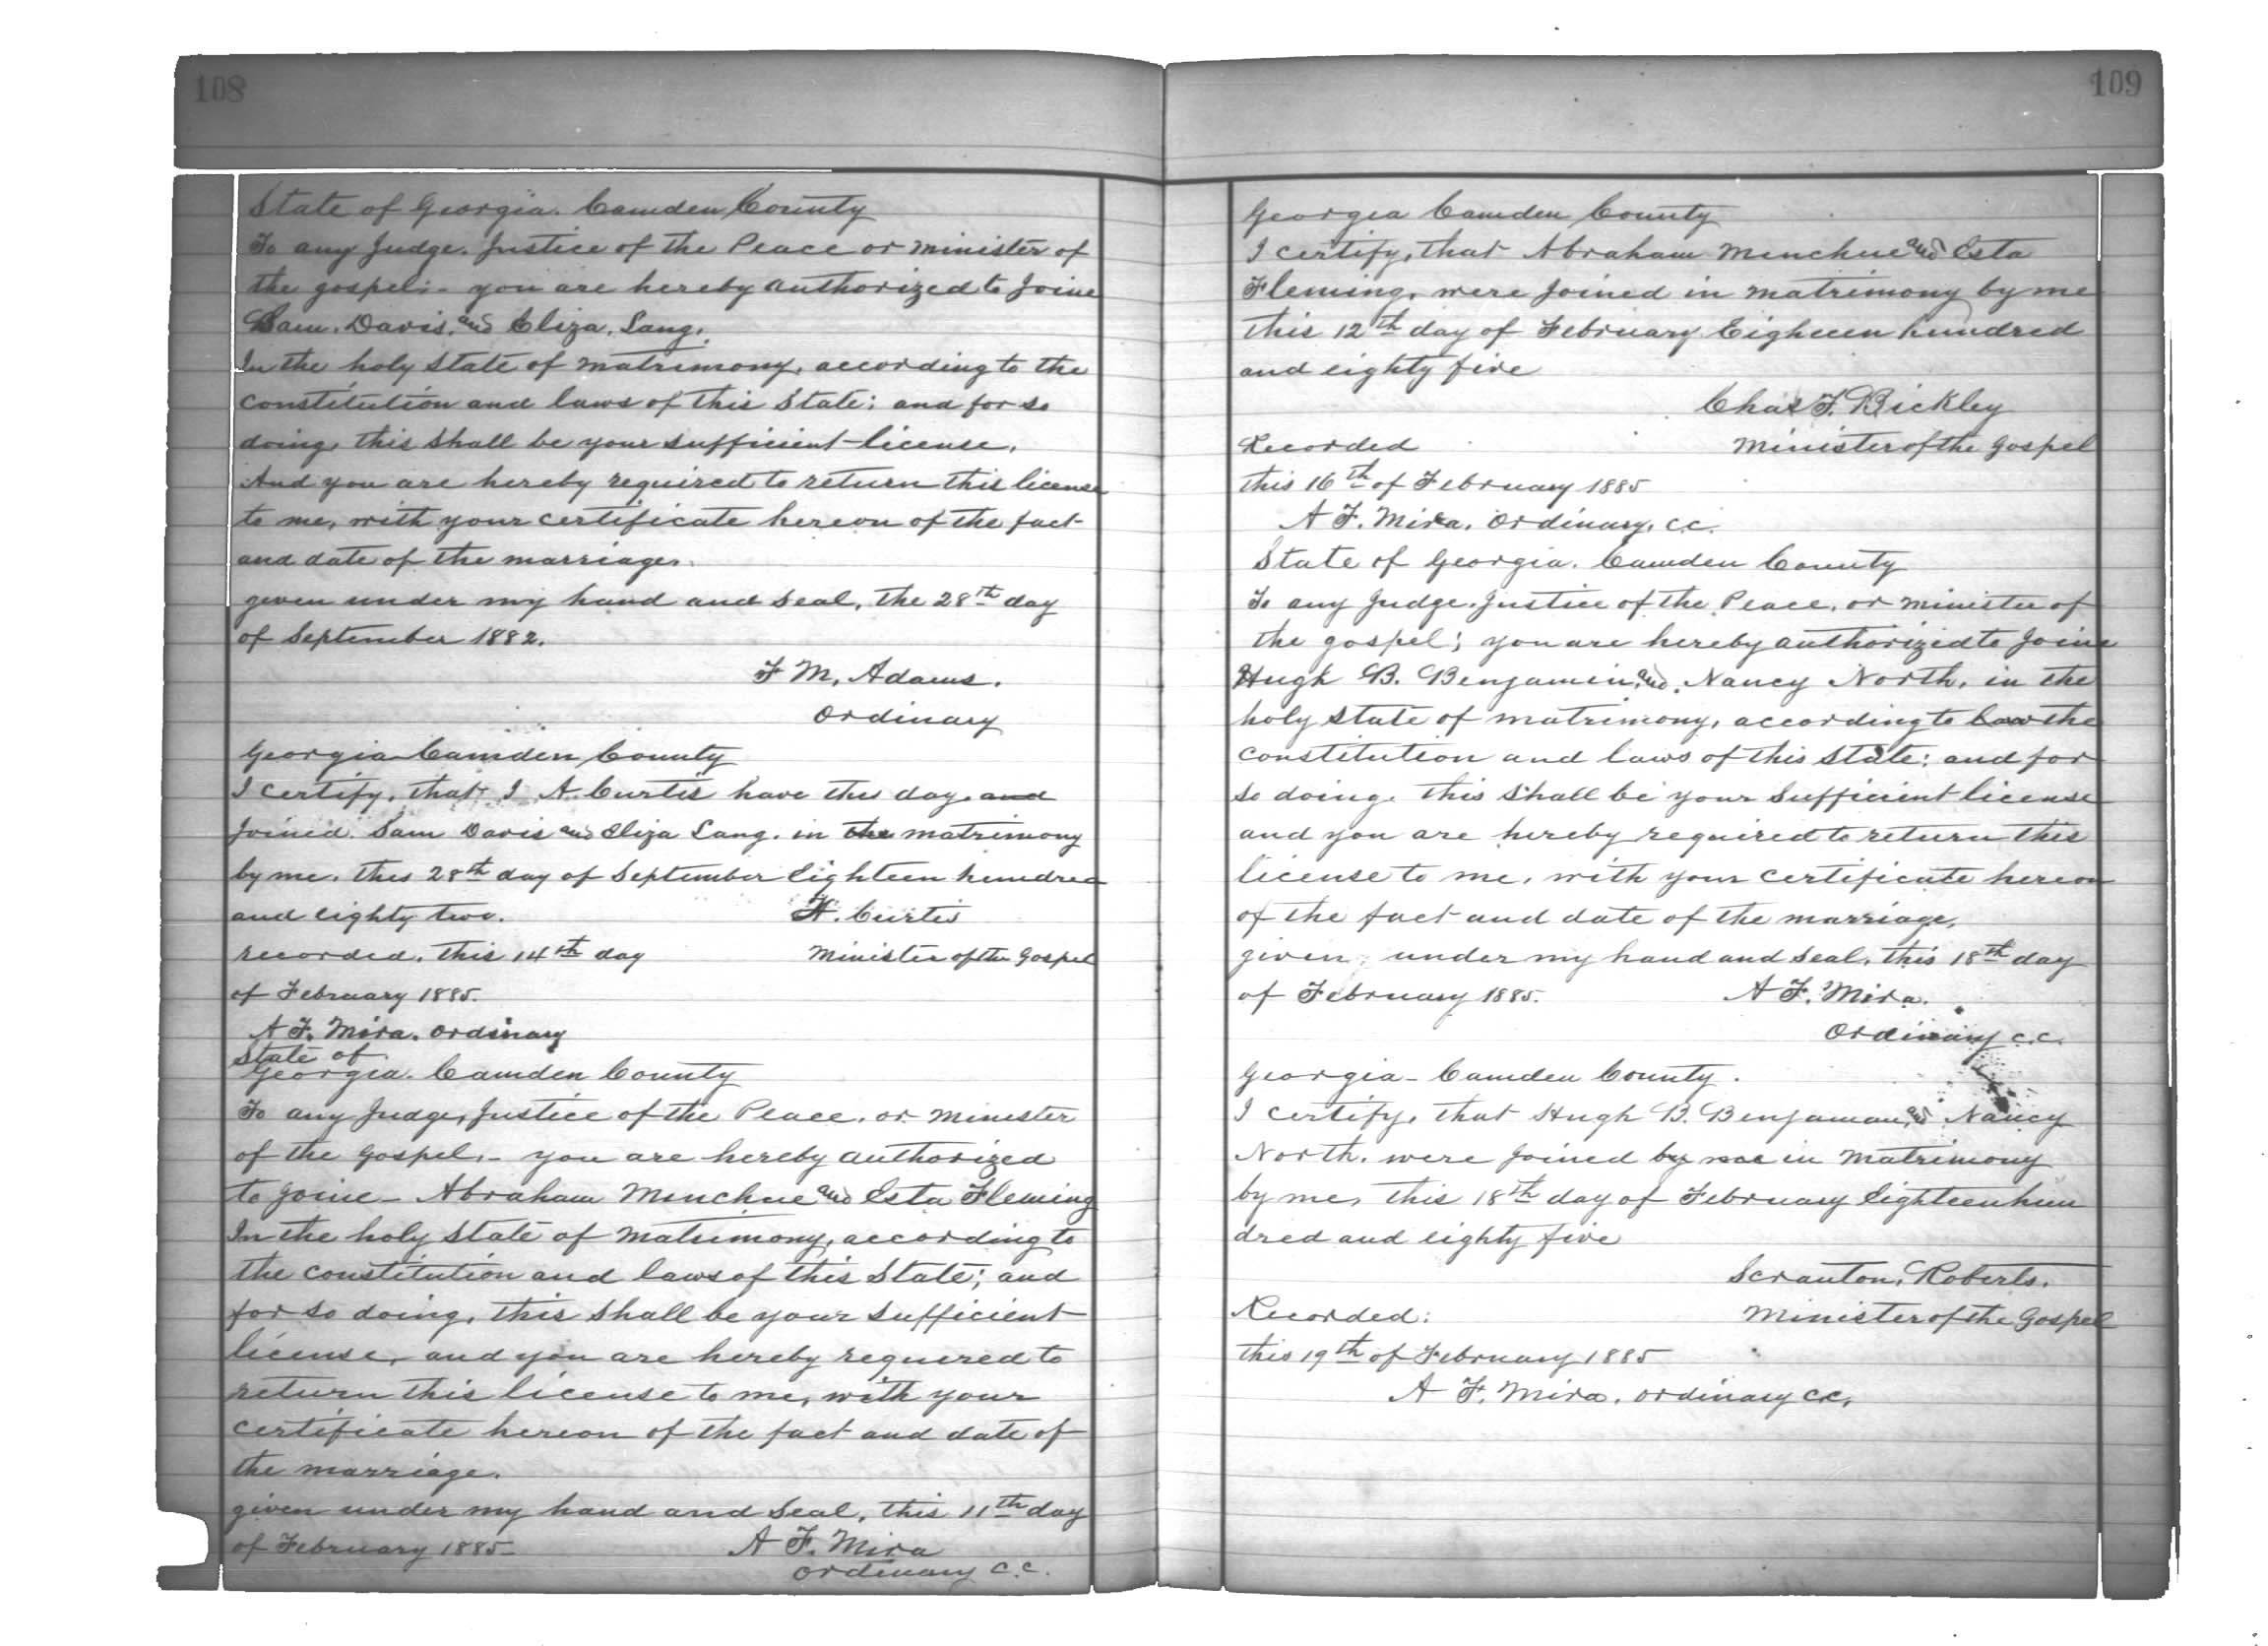 108
State of Georgia. Camden County
To any Judge. Justice of the Peace or minister of
the gospel:- you are hereby authorized to Joine
Sam. Davis. and Eliza. Lang.
In the holy state of matrimony, according to the
constitution and laws of this State; and for so
doing, this shall be your sufficient license.
And you are hereby required to return this license
to me, with your certificate hereon of the fact
and date of the marriage.
given under my hand and seal, the 28th day
of September 1882.
F M, Adams.
Ordinary
Georgia Camden County
I certify, that I A. Curtis have this day and
Joined. Sam Davis and Eliza Lang. in the matrimony
by me. this 28th day of September Eighteen hundred
and eighty two. A. Curtis
recorded, this 14th day Minister of the Gospel
of February 1885.
A F. Mira. Ordinary
State of
Georgia. Camden County
To any Judge, Justice of the Peace. or. Minister
of the Gospel. - you are hereby authorized
to Joine - Abraham Menchue and Esta Fleming
In the holy state of matrimony, according to
the constitution and laws of this State; and
for so doing, this shall be your sufficient
license, and you are hereby required to
return this license to me, with your
certificate hereon of the fact and date of
the marriage.
given under my hand and seal, this 11th day
of February 1885- A F. Mira
Ordinary C.C.
109
Georgia Camden County
I certify, that Abraham Menchue and Esta
Fleming, were Joined in matrimony by me
this 12th day of February Eigheeen hundred
and eighty five
Chas F. Bickley
Recorded Minister of the Gospel
this 16th of February 1885
A F. Mira. Ordinary, C.C.
State of Georgia. Camden County
To any Judge. Justice of the Peace, or minister of
the gospel; you are hereby authorized to Joine
Hugh B. Benjamin, and, Nancy North, in the
holy state of matrimony, according to law the
constitution and laws of this state; and for
so doing. this shall be your sufficient license
and you are hereby required to return this
license to me, with your certificate hereon
of the fact and date of the marriage.
given, under my hand and seal. this 18th day
of February 1885. A F. Mira.
Ordinary C.C.
Georgia - Camden County.
I certify, that Hugh B. Benjaman, and Nancy
North. were Joined by me in matrimony
by me, this 18th day of February Eighteen hun
dred and eighty five
Scranton, Roberts.
Recorded: Minister of the Gospel
this 19th of February 1885
A F. Mira. Ordinary C.C.